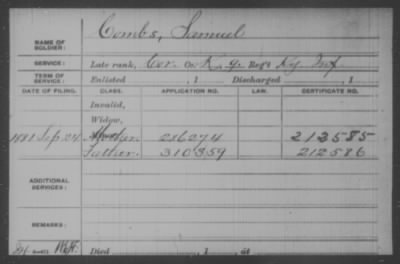 Combs, Samuel
NAME OF SOLDIER:
SERVICE: Late rank, Cor. Co. K, 9, Reg't Ky Inf
TERM OF SERVICE: Enlisted , 1 Discharged , 1
DATE OF FILING. CLASS. APPLICATION NO. LAW. CERTIFICATE NO.
Invalid,
Widow,
1881 Sep 24 Mother. 286274 212585
Father. 310359 212586
ADDITIONAL SERVICES:
REMARKS:
Died , 1 , at